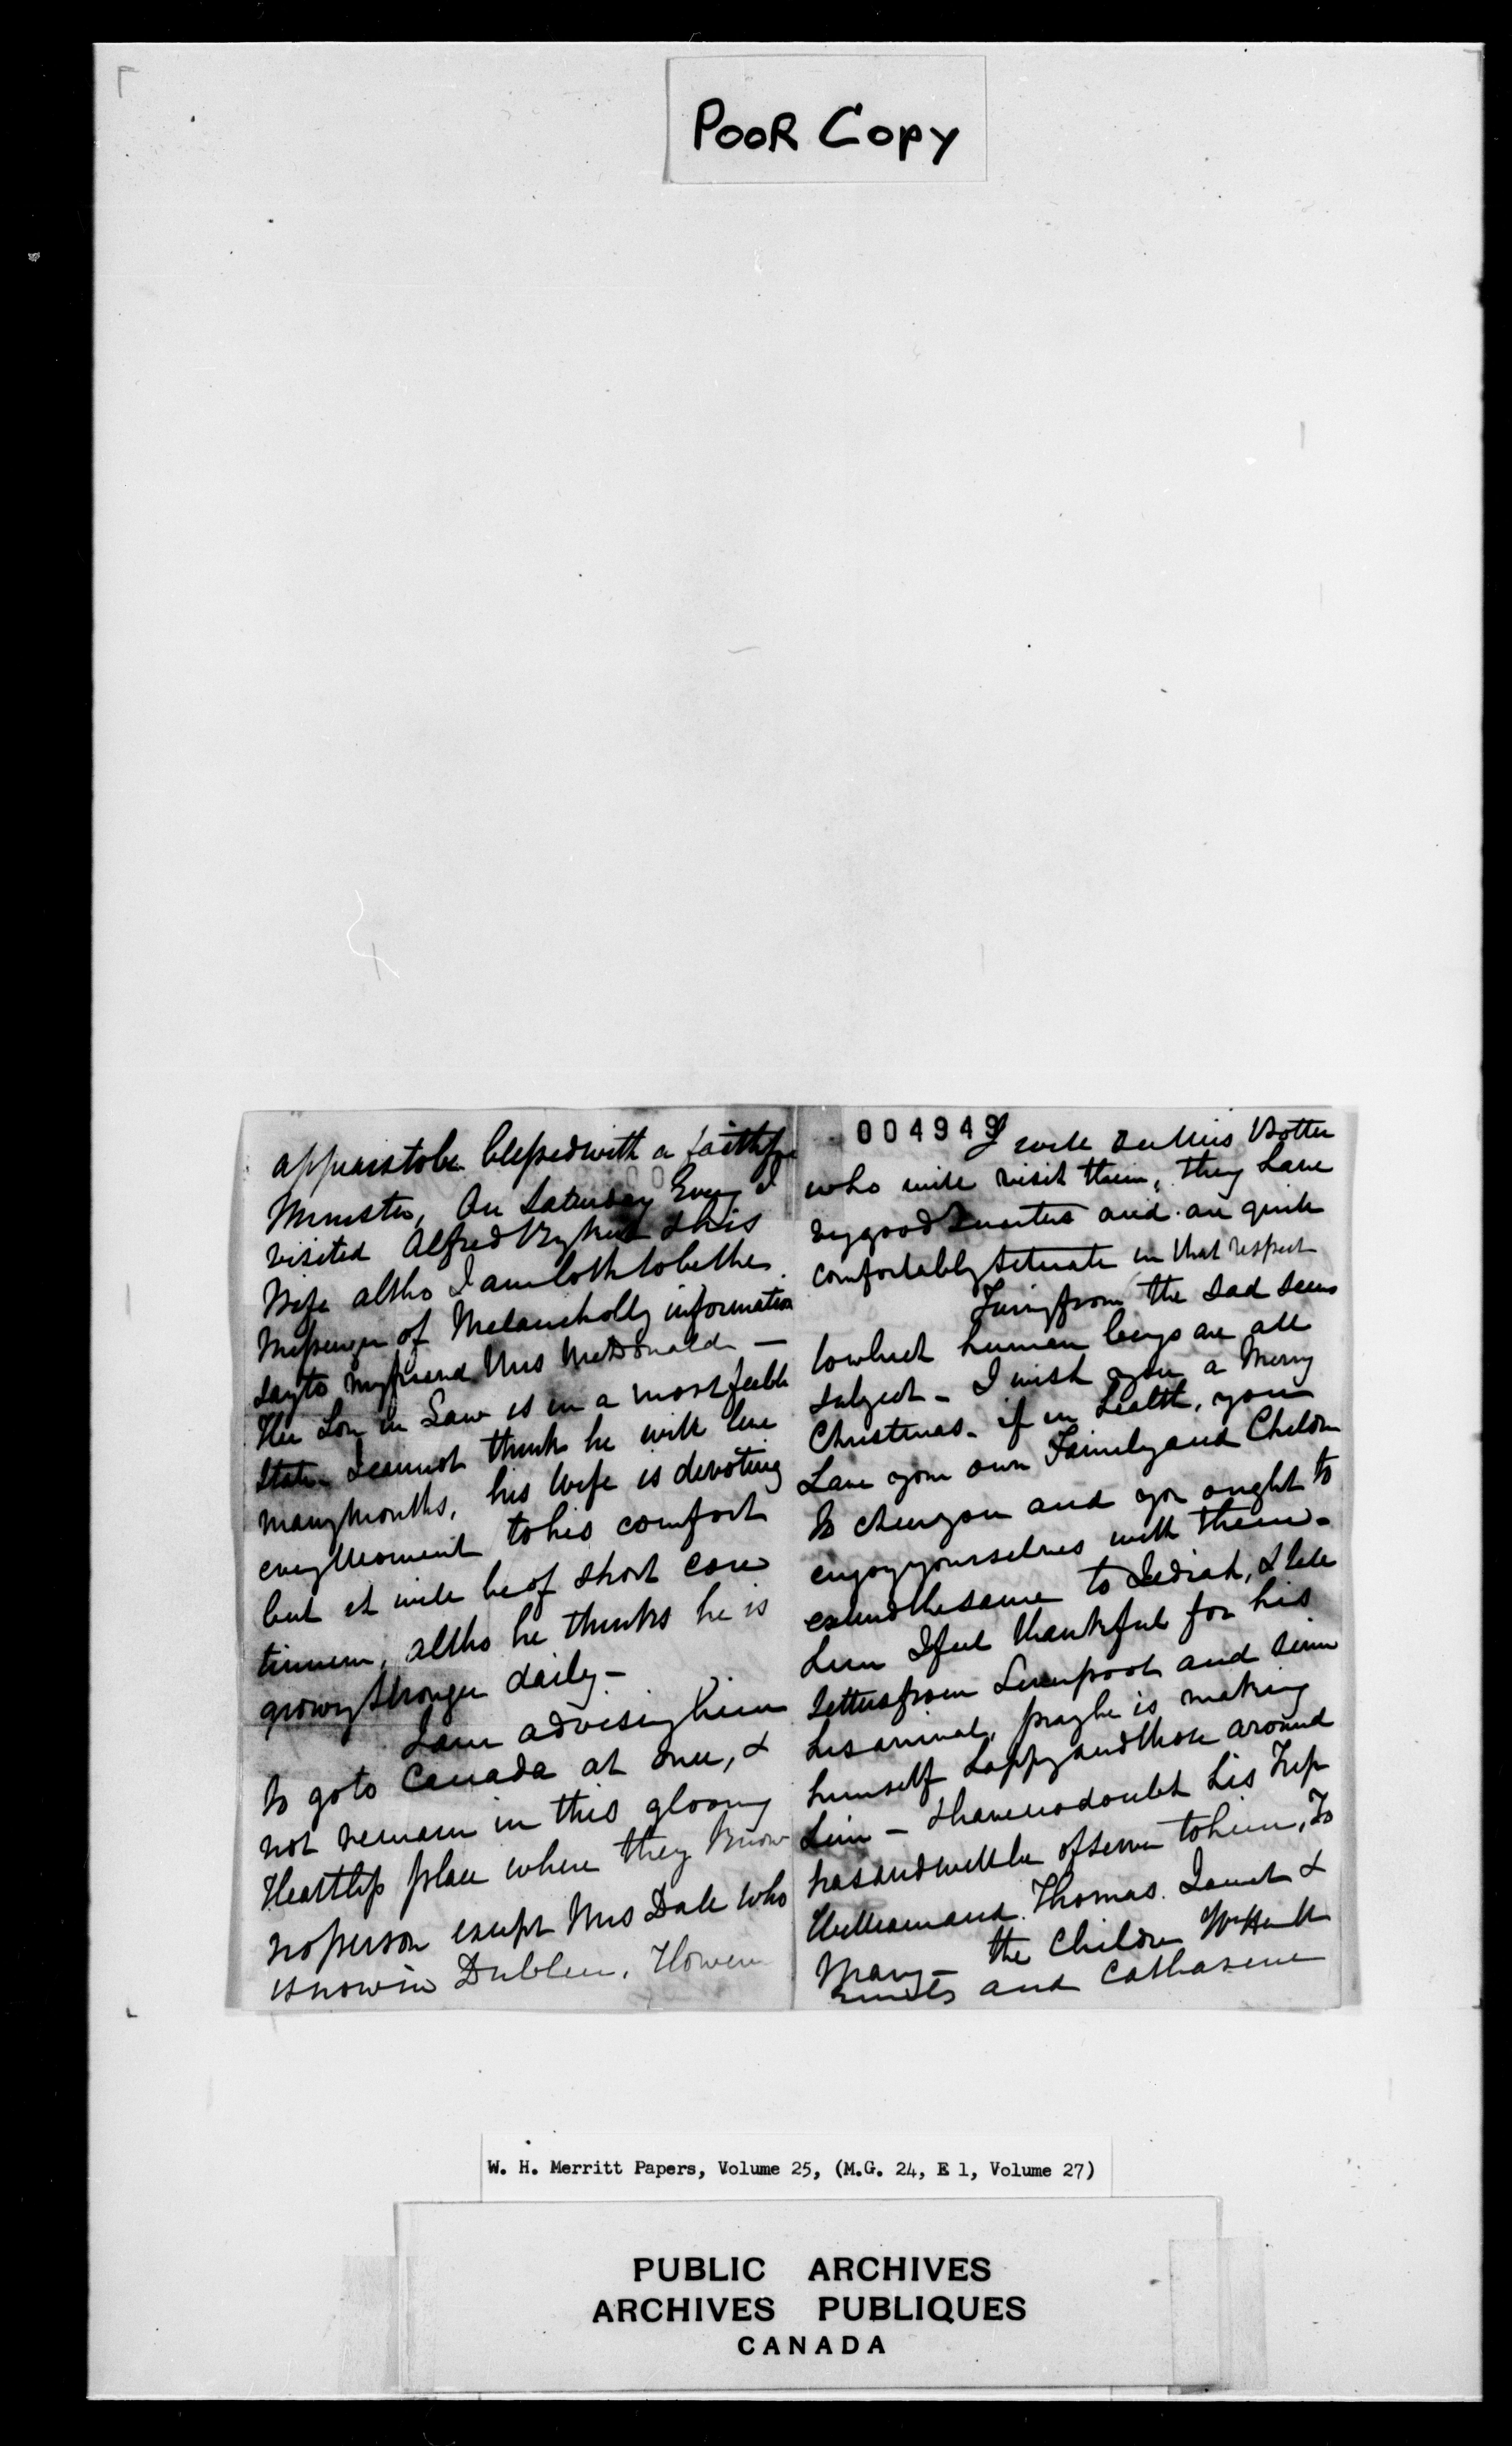 POOR COPY
appears to be blessed with a faithful
Minister, On Saturday Eveng I
visited Alfred & his
Wife altho I am loth to be the
Messenger of Melancholly information
say to my friend Mrs McDonald —
Her Son in Law is in a most feeble
State I cannot think he will live
many months, his Wife is devoting
every Moment to his comfort
but it will be of short con
tinuance, altho he thinks he is
growing stronger daily —
I am advising him
to go to Canada at once, &
not remain in this gloomy
Heartless place where they know
no person except Mrs Dale who
is now in Dublin, However
004949
I will see Miss
who will visit them, they have
very good Quarters and are quite
comfortably situate in that respect
Turning from the sad scenes
to which human beings are all
subject – I wish you a Merry
Christmas – if in health, you
have your own Family and Children
to cheer you and you ought to
enjoy yourselves with them –
extend the same to Jediah, & tell
him I feel thankful for his
letters from Liverpool and since
his arrival, pray he is making
himself happy and those around
him – I have no doubt his Trip
has and will be of service to him, To
William and Thomas. Janet &
Mary – the Children
and Catharine
W. H. Merritt Papers, Volume 25, (M.G. 24, E 1, Volume 27)
PUBLIC ARCHIVES
ARCHIVES PUBLIQUES
CANADA